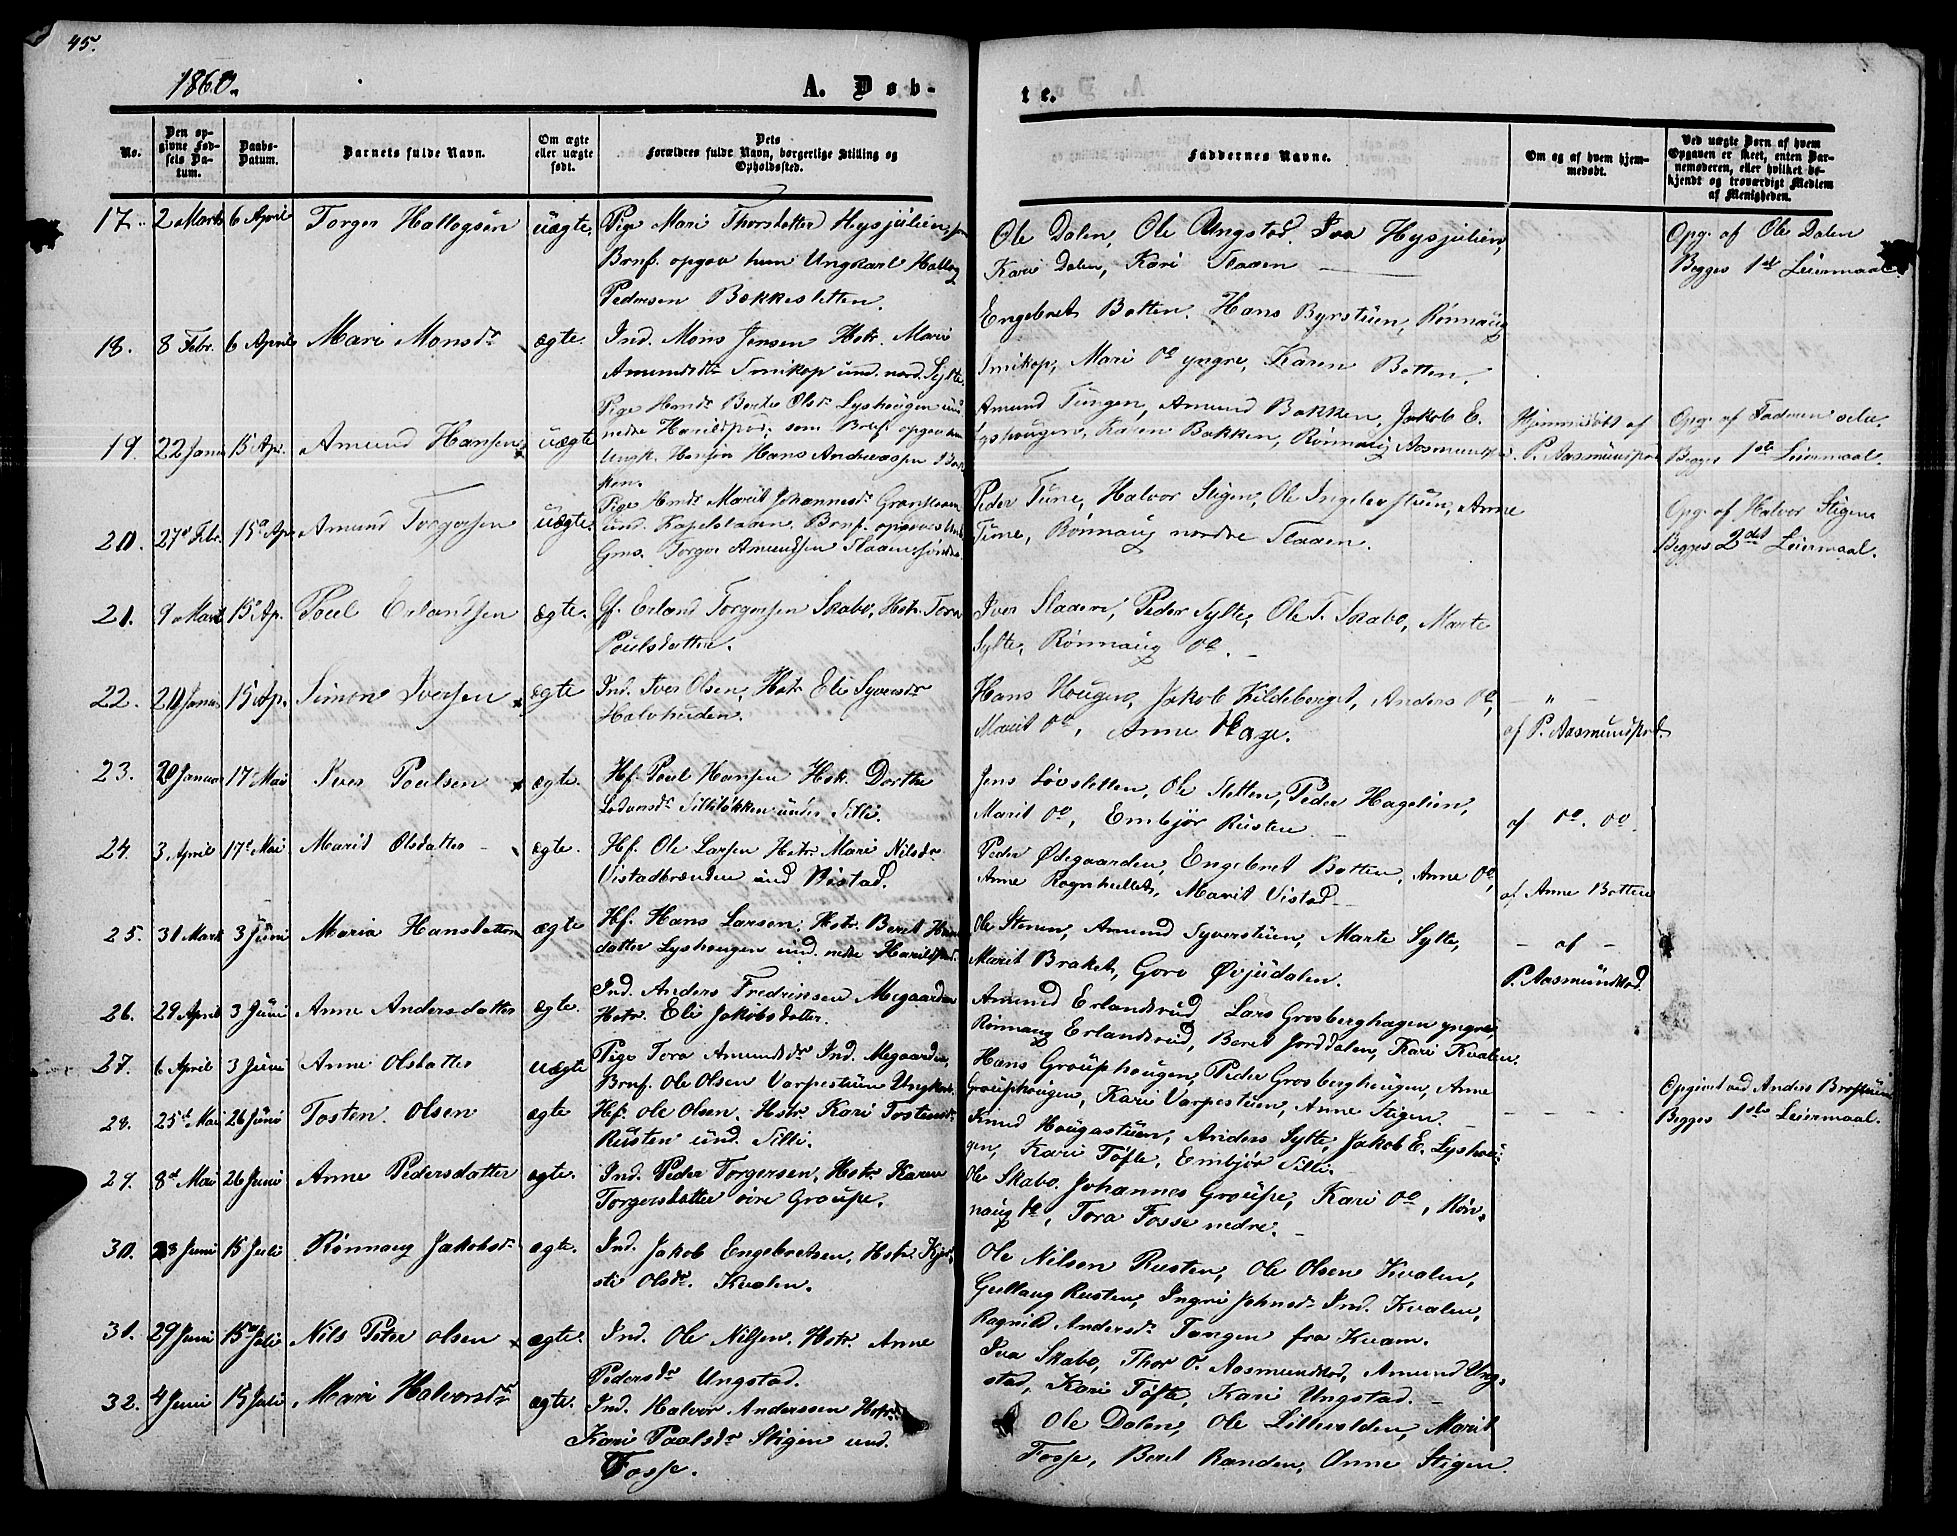 45.
1860.
A. Døb-
te.
No.
Den op-
givne Fød-
sels Da-
tum.
Daabs-
Datum.
Barnets fulde Navn.
Om ægte
eller uægte
født.
Dets
Forældres fulde Navn, borgerlige Stilling og
Opholdssted.
Faddernes Navne.
Om og af hvem hjem-
medøbt.
Ved uægte Børn af hvem
Opgaven er skeet, enten Bar-
nemoderen, eller hvilket be-
kjendt og troværdigt Medlem
af Menigheden.
17. 2 Marts 6 April Torger Hallogsön uægte. Pige Mari Thorsdatter Hysjulien, som
Brnf. opgav hun Ungkarl Hallog
Pedersen Bakkesletten.
Ole Dalen, Ole Ungstad. Iva Hysjulien,
Kari Dalen, Kari Slaaen
Opg. af Ole Dalen
Begges 1st Leiermaal.
18. 8 Febr. 6 April Mari Monsdr ægte. Ind. Mons Jensen Hstr. Mari
Amundsdr Smikop und. nord. Sylte.
Engebret Botten, Hans Byrstuen, Rønnaug
Smikop, Mari do yngre, Karen Botten.
19. 22 Janu 15 Ap. Amund Hansen uægte Pige Hmdr Berte Olsdr Lyshougen und
nedre Harildstad, som Brnf. opgav hun
Ungk. Hans Andreassen Bak-
ken.
Amund Tungen, Amund Bakken, Jakob E.
Lyshougen, Karen Bakken, Rønnaug Aasmundstad
Hjemmedøbt af
P. Aasmundstad
Opg. af Faderen selv.
Begges 1ste Leiermaal.
20. 27de Febr. 15de Ap. Amund Torgersen uægte. Pige Hmdr Marit Johannesdr
und. Kapelslaaen. Brnf. opgaves
Gms. Torger Amundsen Slaaen søndre
Peder Tune, Halvor Stigen, Ole Ingelevstuen, Anne
Tune, Rønnaug nordre Slaaen.
Opg. af Halvor Stigen
Begges 2det Leiermaal.
21. 9 Marts 15de Ap. Poul Erlandsen ægte. Gf. Erland Torgersen Skabo, Hstr. Tora
Poulsdatter.
Iver Slaaen, Peder Sylte, Ole T. Skabo, Marte
Sylte, Rønnaug do.
22. 20 Janua 15 Ap. Simon Iversen ægte Ind. Iver Olsen, Hstr Eli Syversdr
Halvhuden.
Hans Hougen, Jakob Kildeberget, Anders do,
Marit do, Anne Hage.
- " -
af P. Aasmundstad
23. 20 Januar 17de Mai Iver Poulsen ægte. Hf. Poul Hansen Hstr. Dorthe
Lodvensdr Silliløkken under Silli.
Jens Løvsletten, Ole Sletten, Peder Hagelien,
Marit do, Embjør Rusten
af do. do.
24. 3 April 17de Mai Marit Olsdatter ægte. Hf. Ole Larsen Hstr. Mari Nilsdr
Vistadbrænden und Vistad.
Peder Ødegaarden, Engebret Botten, Anne do,
Anne Ragnhullet, Marit Vistad
af Anne Botten
25. 31 Mart 3 Juni Maria Hansdatter ægte Hf. Hans Larsen, Hstr. Beret Hans
datter Lyshougen und. nedre Harildstad
Ole Stenen, Amund Syverstuen, Marte Sylte,
Marit Braket, Goro Øvjudalen.
- af -
P. Aasmundstad.
26. 29 April 3 Juni Anne Andersdatter ægte. Ind. Anders Fredriksen Megaarden
Hstr. Eli Jakobsdatter.
Amund Erlandsrud, Lars Grosberghagen yngre,
Rønnaug Erlandsrud, Beret Jorddalen, Kari Kvalen.
27. 6 April 3 Juni Anne Olsdatter uægte Pige Tora Amundsdr Ind. Megaarden,
Brnf. Ole Olsen Varpestuen Ungkarl.
Hans Grouphougen, Peder Grosberghougen, Anne
Grouphougen, Kari Varpestuen, Anne Stigen.
Opgivet ved Anders Brostuen
Begges 1ste Leiermaal.
28. 25de Mai 26 Juni Tosten Olsen ægte Hf. Ole Olsen, Hstr. Kari Tostensdr
Rusten und. Silli.
Knud Hougastuen, Anders Sylte, Jakob E. Lyshou-
gen, Kari Tofte, Embjør Silli.
29. 8de Mai 26 Juni Anne Pedersdatter ægte. Ind. Peder Torgersen, Hstr. Karen
Torgersdatter øvre Groupe.
Ole Skabo. Johannes Groupe, Kari do, Røn-
naug do, Tora Fosse nedre.
30. 23 Juni 15 Juli Rønnaug Jakobsdr ægte. Ind. Jakob Engebretsen, Hstr. Kjer-
sti Olsdr. Kvalen.
Ole Nilsen Rusten, Ole Olsen Kvalen,
Gullaug Rusten, Ingri Johnsdr Ind. Kvalen,
Ragnild Andersdr Tangen fra Kvam.
31. 29 Juni 15de Juli Nils Peter Olsen ægte. Ind. Ole Nilsen. Hstr. Anne
Pedersdr Ungstad.
Iva Skabo, Thor O. Aasmundstad, Amund Ung-
stad, Kari Tofte, Kari Ungstad.
32. 4 Juni 15 Juli Mari Halvorsdr ægte. Ind. Halvor Anderssen Hstr.
Kari Paalsdr Stigen und.
Fosse.
Ole Dalen, Ole Lillevolden, Marit
Fosse, Beret Randen, Anne Stigen.